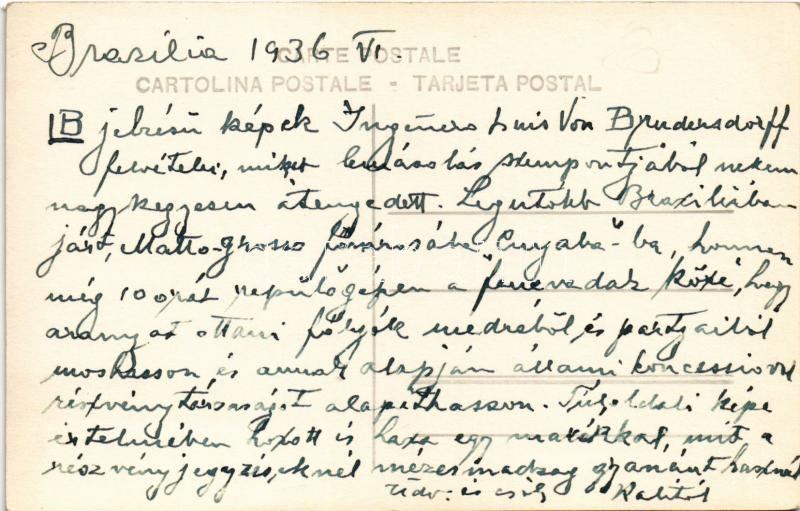 Brasilia 1936 VI.
CARTE POSTALE
CARTOLINA POSTALE - TARJETA POSTAL
B jelzésű képek Ingeniero Luis Von Brudersdorff
felvételei, miket lemásolás szempontjából nekem
nagykegyesen átengedett. Legutóbb Braziliában
járt, Matto-grosso fővárosába "Cuyaba"-ba, honnan
még 10 órát repülőgépen a "fenevadak közé", hogy
aranyat ottani folyók medréből és partjaiból
moshasson, és annak alapján állami koncessioval
részvénytársaságot alapíthasson. Túloldali képe
értelmében hozott is haza egy marékkal, mit a
részvényjegyzéseknél mézesmadzag gyanánt használ
Üdv: és csók Kalitól